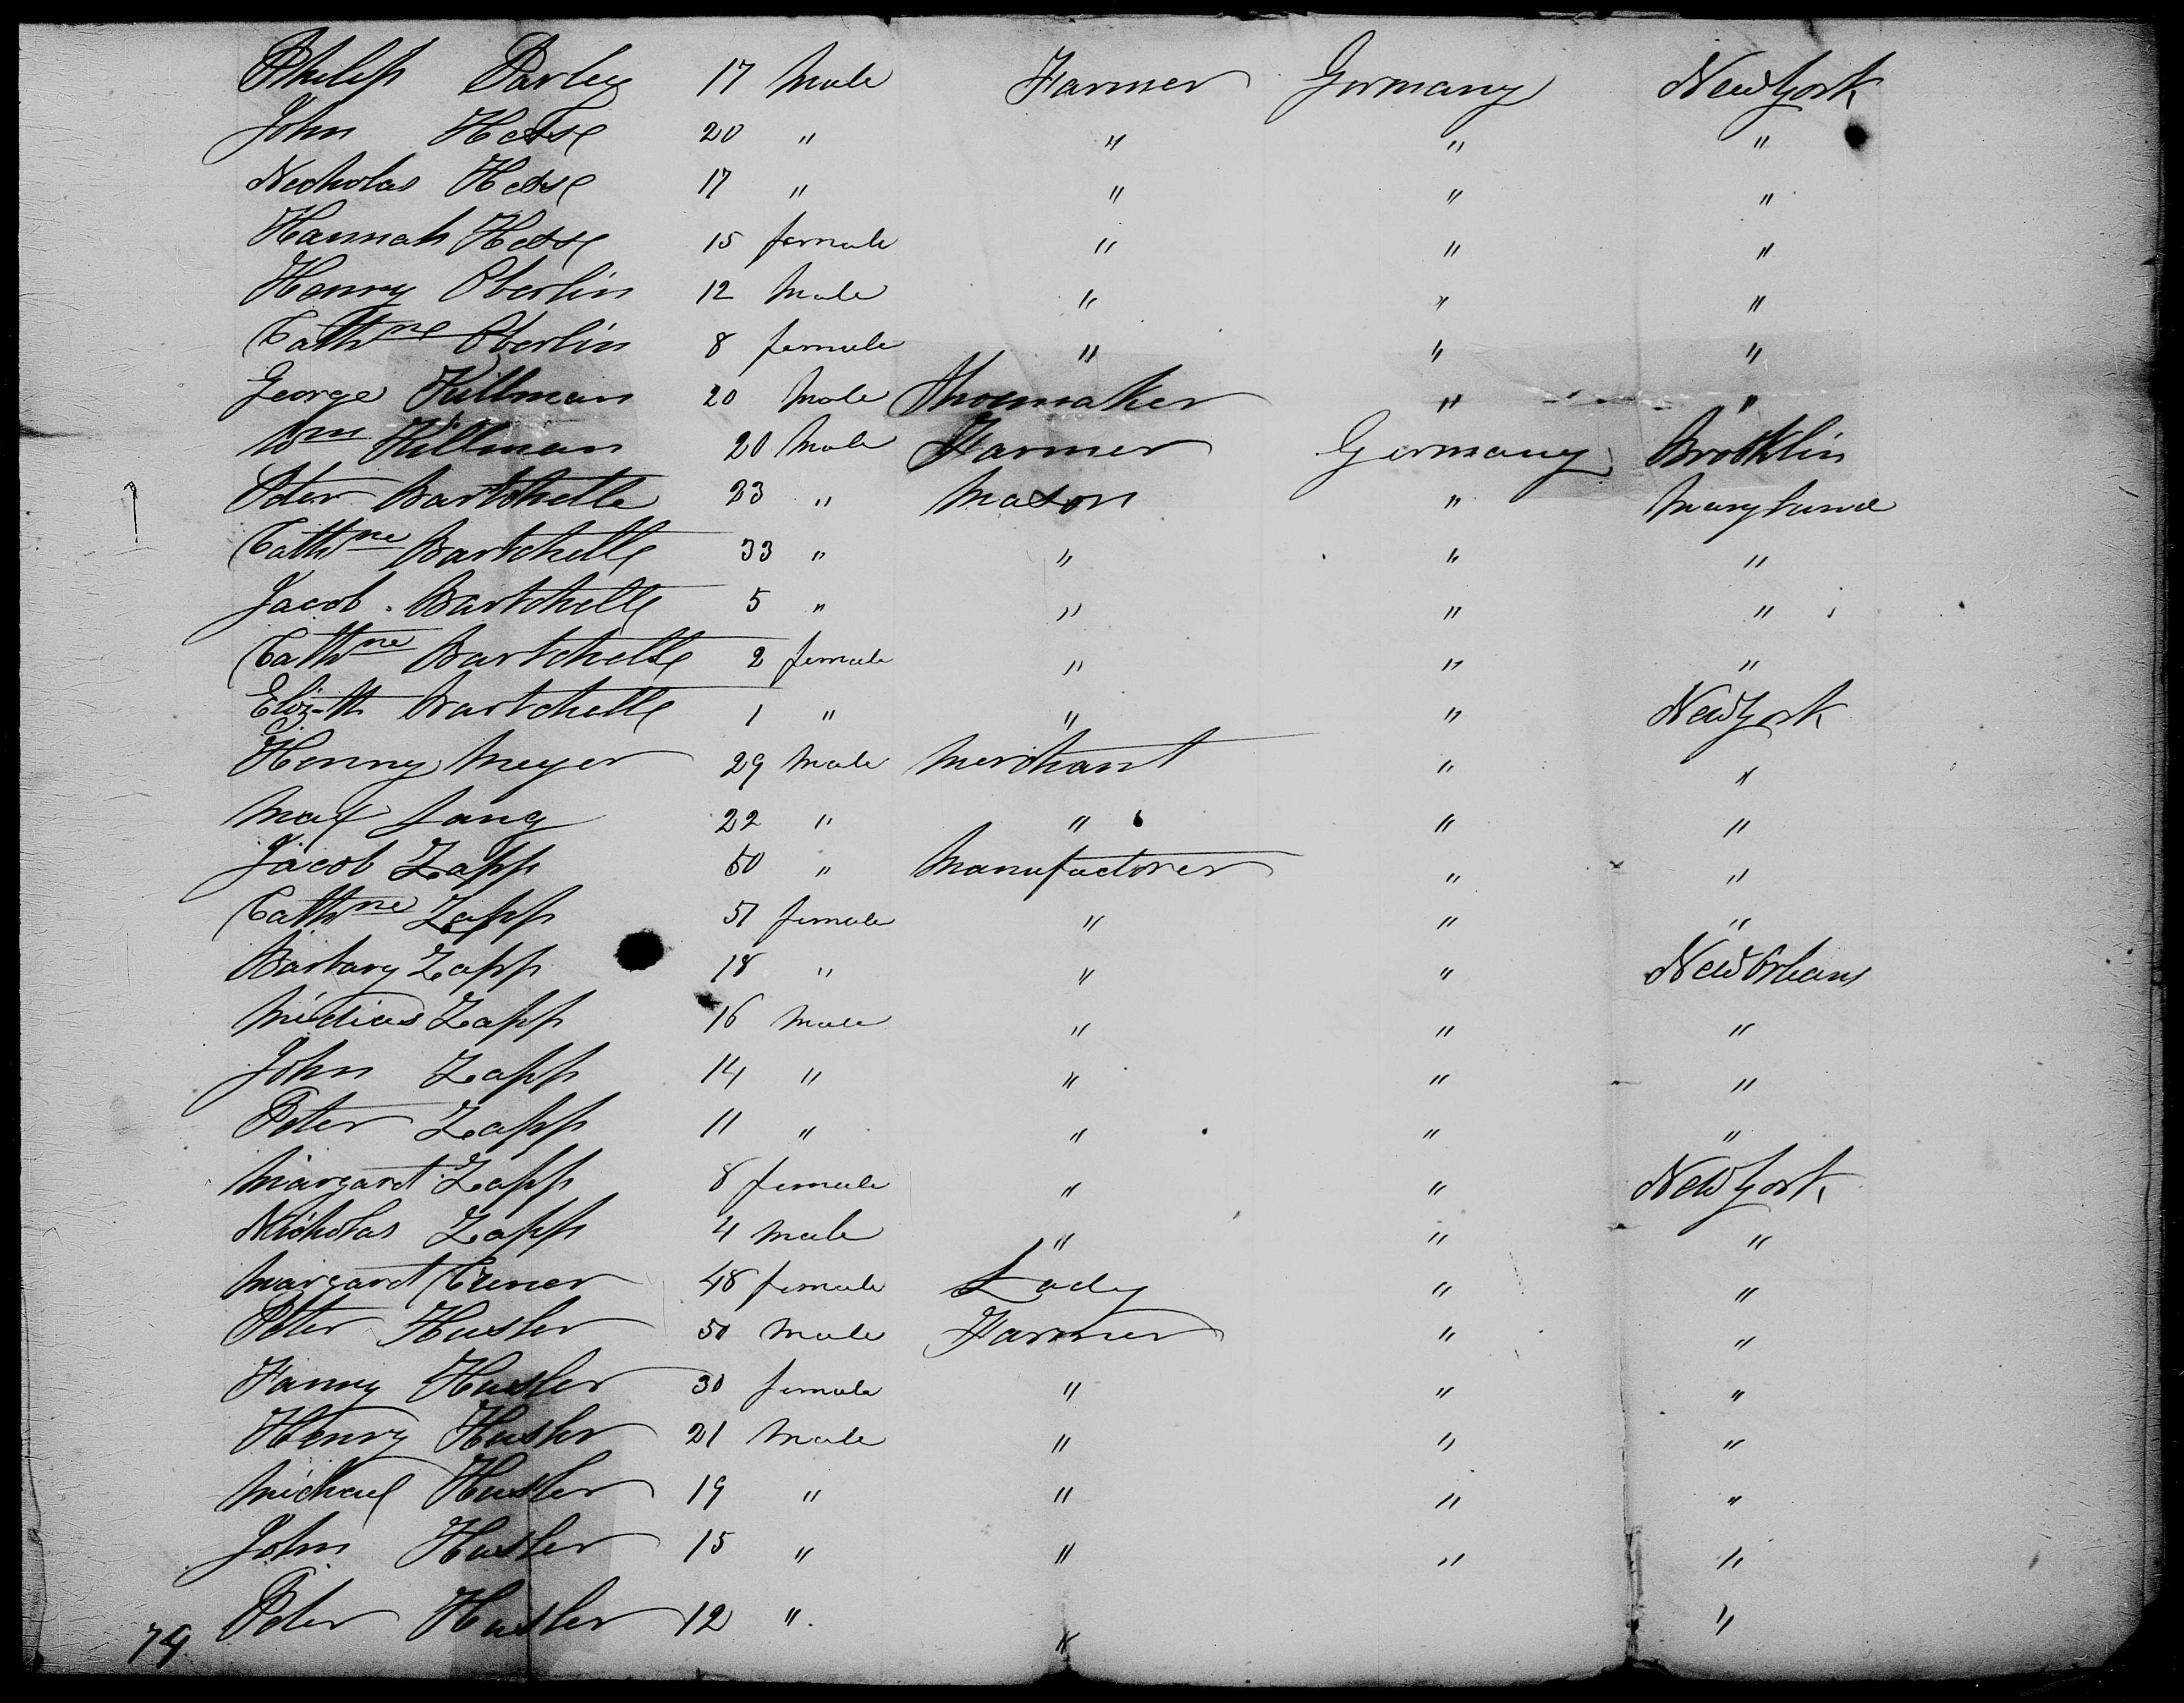 Philip Darley 17 Male Farmer Germany New York
John Hesse 20 " " " "
Necholas Hesse 17 " " " "
Hannah Hesse 15 female " " "
Henry Oberlin 12 Male " " "
Cathne Oberlin 8 female " " "
George Killman 20 Male Shoemaker " "
Wm Killman 20 Male Farmer Germany Brooklin
Peter Bartchelle 23 " Mason " Maryland
Cathne Bartchelle 33 " " " "
Jacob Bartchelle 5 " " " "
Cathne Bartchelle 2 female " " "
Elizth Bartchelle 1 " " " New York
Henry Meyer 29 Male Merchant " "
Max Lang 22 " " " "
Jacob Zapp 50 " Manufactorer " "
Cathne Zapp 51 female " " "
Barbary Zapp 18 " " " New Orleans
Zapp 16 Male " " "
John Zapp 14 " " " "
Peter Zapp 11 " " " "
Margaret Zapp 8 female " " New York
Nicholas Zapp 4 Male " " "
Margaret 48 female Lady " "
Peter Husler 50 Male Farmer " "
Fanny Husler 30 female " " "
Henry Husler 21 Male " " "
Michael Husler 19 " " " "
John Husler 15 " " " "
74 Peter Husler 12 " " "